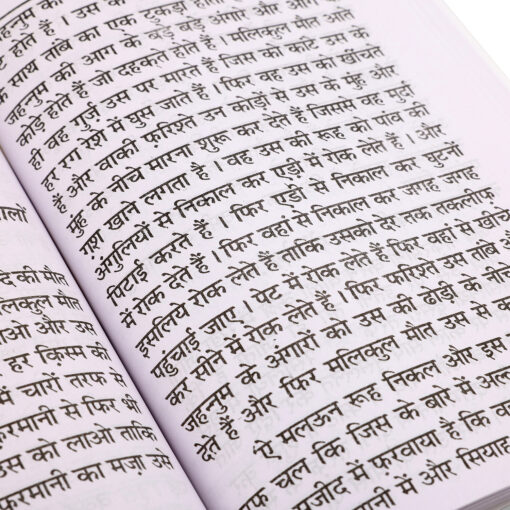 दकी मौत
लकुल मौत
ओ और उस
हर किस्म की
में चारों तरफ से
फ़रमानी से फिर थी
उस को लाओ ताकि
फ़रमानी का मज़ा उसे
होते हैं । उस के
साथ तांबे का एक टुकड़ा होता
जहन्नुम की आग के अंगारे और आग
कोड़े होते हैं जो दहकते होते हैं । मलिकुल मौत
ही वह गुर्ज़ उस पर मारते हैं जिस के कांटे उस के
हर रग रेशे में घुस जाते हैं । फिर वह उस को खींचते
हैं और बाकी फ़रिश्ते उन कोड़ों से उस के मुंह और
मुंह के नीचे मारना शुरू कर देते हैं जिससे वह मुर्दा
ग़श खाने लगता है । वह उस की रूह को पांव की
अंगुलियों से निकाल कर एड़ी में रोक लेते हैं । और
पिटाई करते हैं । फिर एड़ी से निकाल कर घुटनों
में रोक देते हैं । फिर वहां से निकाल कर जगह जगह
इसलिये रोक लेते हैं ताकि उसको देर तक तकलीफ़
पहुंचाई जाए । पेट में रोक लेते हैं । फिर वहां से खींच
कर सीने में रोक लेते हैं । फिर फ़रिश्ते उस तांबे और
जहन्नुम के अंगारों को उस की ढोड़ी के नीचे
देते हैं और फिर मलिकुल मौत उस से
ऐ मलऊन रूह निकल और इस
तरफ चल कि जिस के बारे में
मजीद में फ़रमाया है कि
पानी में और सियाह